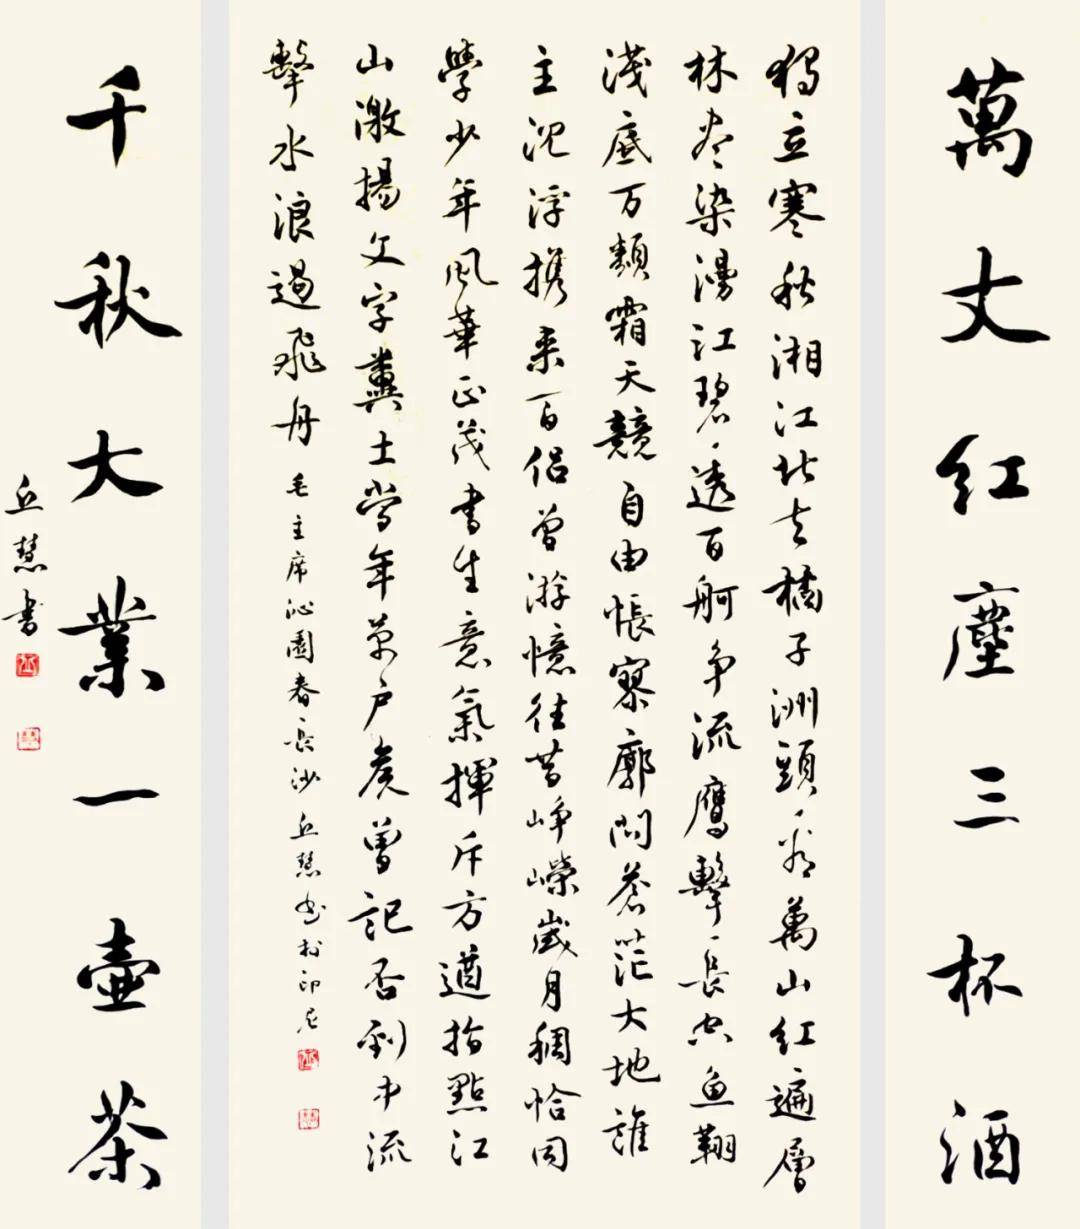 萬丈紅塵三杯酒
獨立寒秋湘江北去橘子洲頭看萬山紅遍層
林尽染漫江碧透百舸争流鷹擊長空魚翔
淺底万類霜天競自由悵寥廓問蒼茫大地誰
主沉浮携来百侣曾游憶往昔崢嶸歲月稠恰同
學少年風華正茂書生意氣揮斥方遒指點江
山激揚文字糞土當年萬户矦曾記否到中流
擊水浪遏飛舟 毛主席沁園春長沙 丘慧书於印尼
千秋大業一壺茶
丘慧書